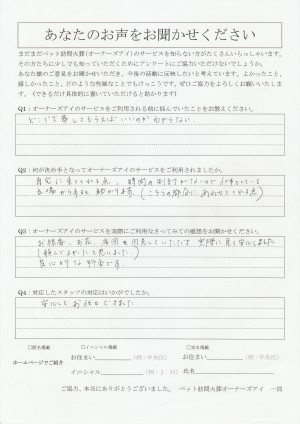 あなたのお声をお聞かせください
まだまだペット訪問火葬(オーナーズアイ)のサービスを知らない方がたくさんいらっしゃいます。
その方たちに少しでも知っていただくためにアンケートにご協力いただけないでしょうか。
あなた様のご意見をお聞かせいただき、今後の活動に反映したいと考えています。よかったこと、
嬉しかったこと、どのような些細なことでもけっこうです。ぜひご協力をよろしくお願いいたします。(できるだけ具体的に書いていただけると助かります)
Q1:オーナーズアイのサービスをご利用される前に悩んでいたことをお教えください。
どこでお願してもらえばいいのか分からない。
Q2:何が決め手となってオーナーズアイのサービスをご利用されましたか。
自宅に来てくれる点、時間の制約がないので仕事をしている
(こちらの都合にあわせてくれる点)
Q3:オーナーズアイのサービスを実際にご利用なさってみての感想をお聞かせください。
(頼んでよかったと思いました)
良心的な料金です。
Q4:対応したスタッフの対応はいかがでしたか。
安心してお任せできました
□匿名掲載 □イニシャル掲載 □実名掲載
ホームページでご紹介
お住まい (例:中央区) お住まい (例:中央区)
イニシャル (例:Y.H) 氏名
ご協力、本当にありがとうございました。 ペット訪問火葬オーナーズアイ 一同